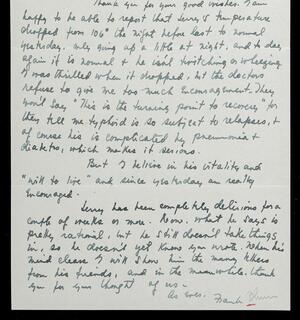 Thank you for your good wishes. I am
happy to be able to report that Jerry's temperature
dropped from 106° the night before last to normal
yesterday, only going up a little at night, and to-day
again it is normal & he isn't twitching or wheezing.
I was thrilled when it dropped, but the doctors
refuse to give me too much encouragement. They
won't say "This is the turning point to recovery" for
they tell me typhoid is so subject to relapses, &
of course his is complicated by pneumonia &
diabetes, which makes it serious.
But I believe in his vitality and
"will to live" and since yesterday am really
encouraged.
Jerry has been completely delirious for a
couple of weeks or more. Now, what he says is
pretty rational, but he still doesn't take things
in, so he doesn't yet know you wrote. When his
mind clears I will show him the many letters
from his friends, and in the meanwhile, thank
you for your thought of us —
As ever,